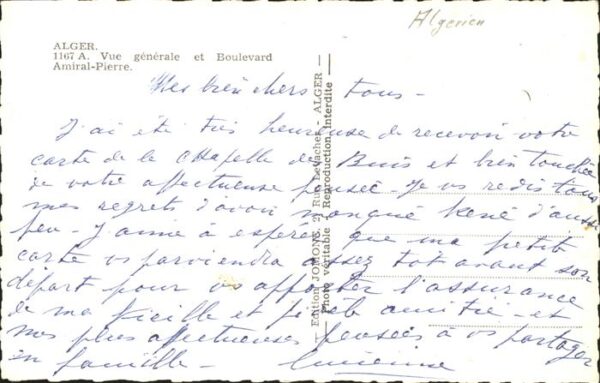 Algerien
ALGER.
1167 A. Vue générale et Boulevard
Amiral-Pierre.
Mes bien chers Tous -
J'ai été très heureuse de recevoir votre
carte de la chapelle de Buis et bien touchée
de votre affectueuse pensée - Je vs redis tous
mes regrets d'avoir manqué René d'aussi
peu - J'aime à espérer que ma petite
carte vs parviendra assez tôt avant son
départ pour vs apporter l'assurance
de ma vieille et amitié - et
mes plus affectueuses pensées à vs partager
en famille - Lucienne
Edition JOMONE, 21 Rue Levacher - ALGER
Photo véritable - Reproduction interdite